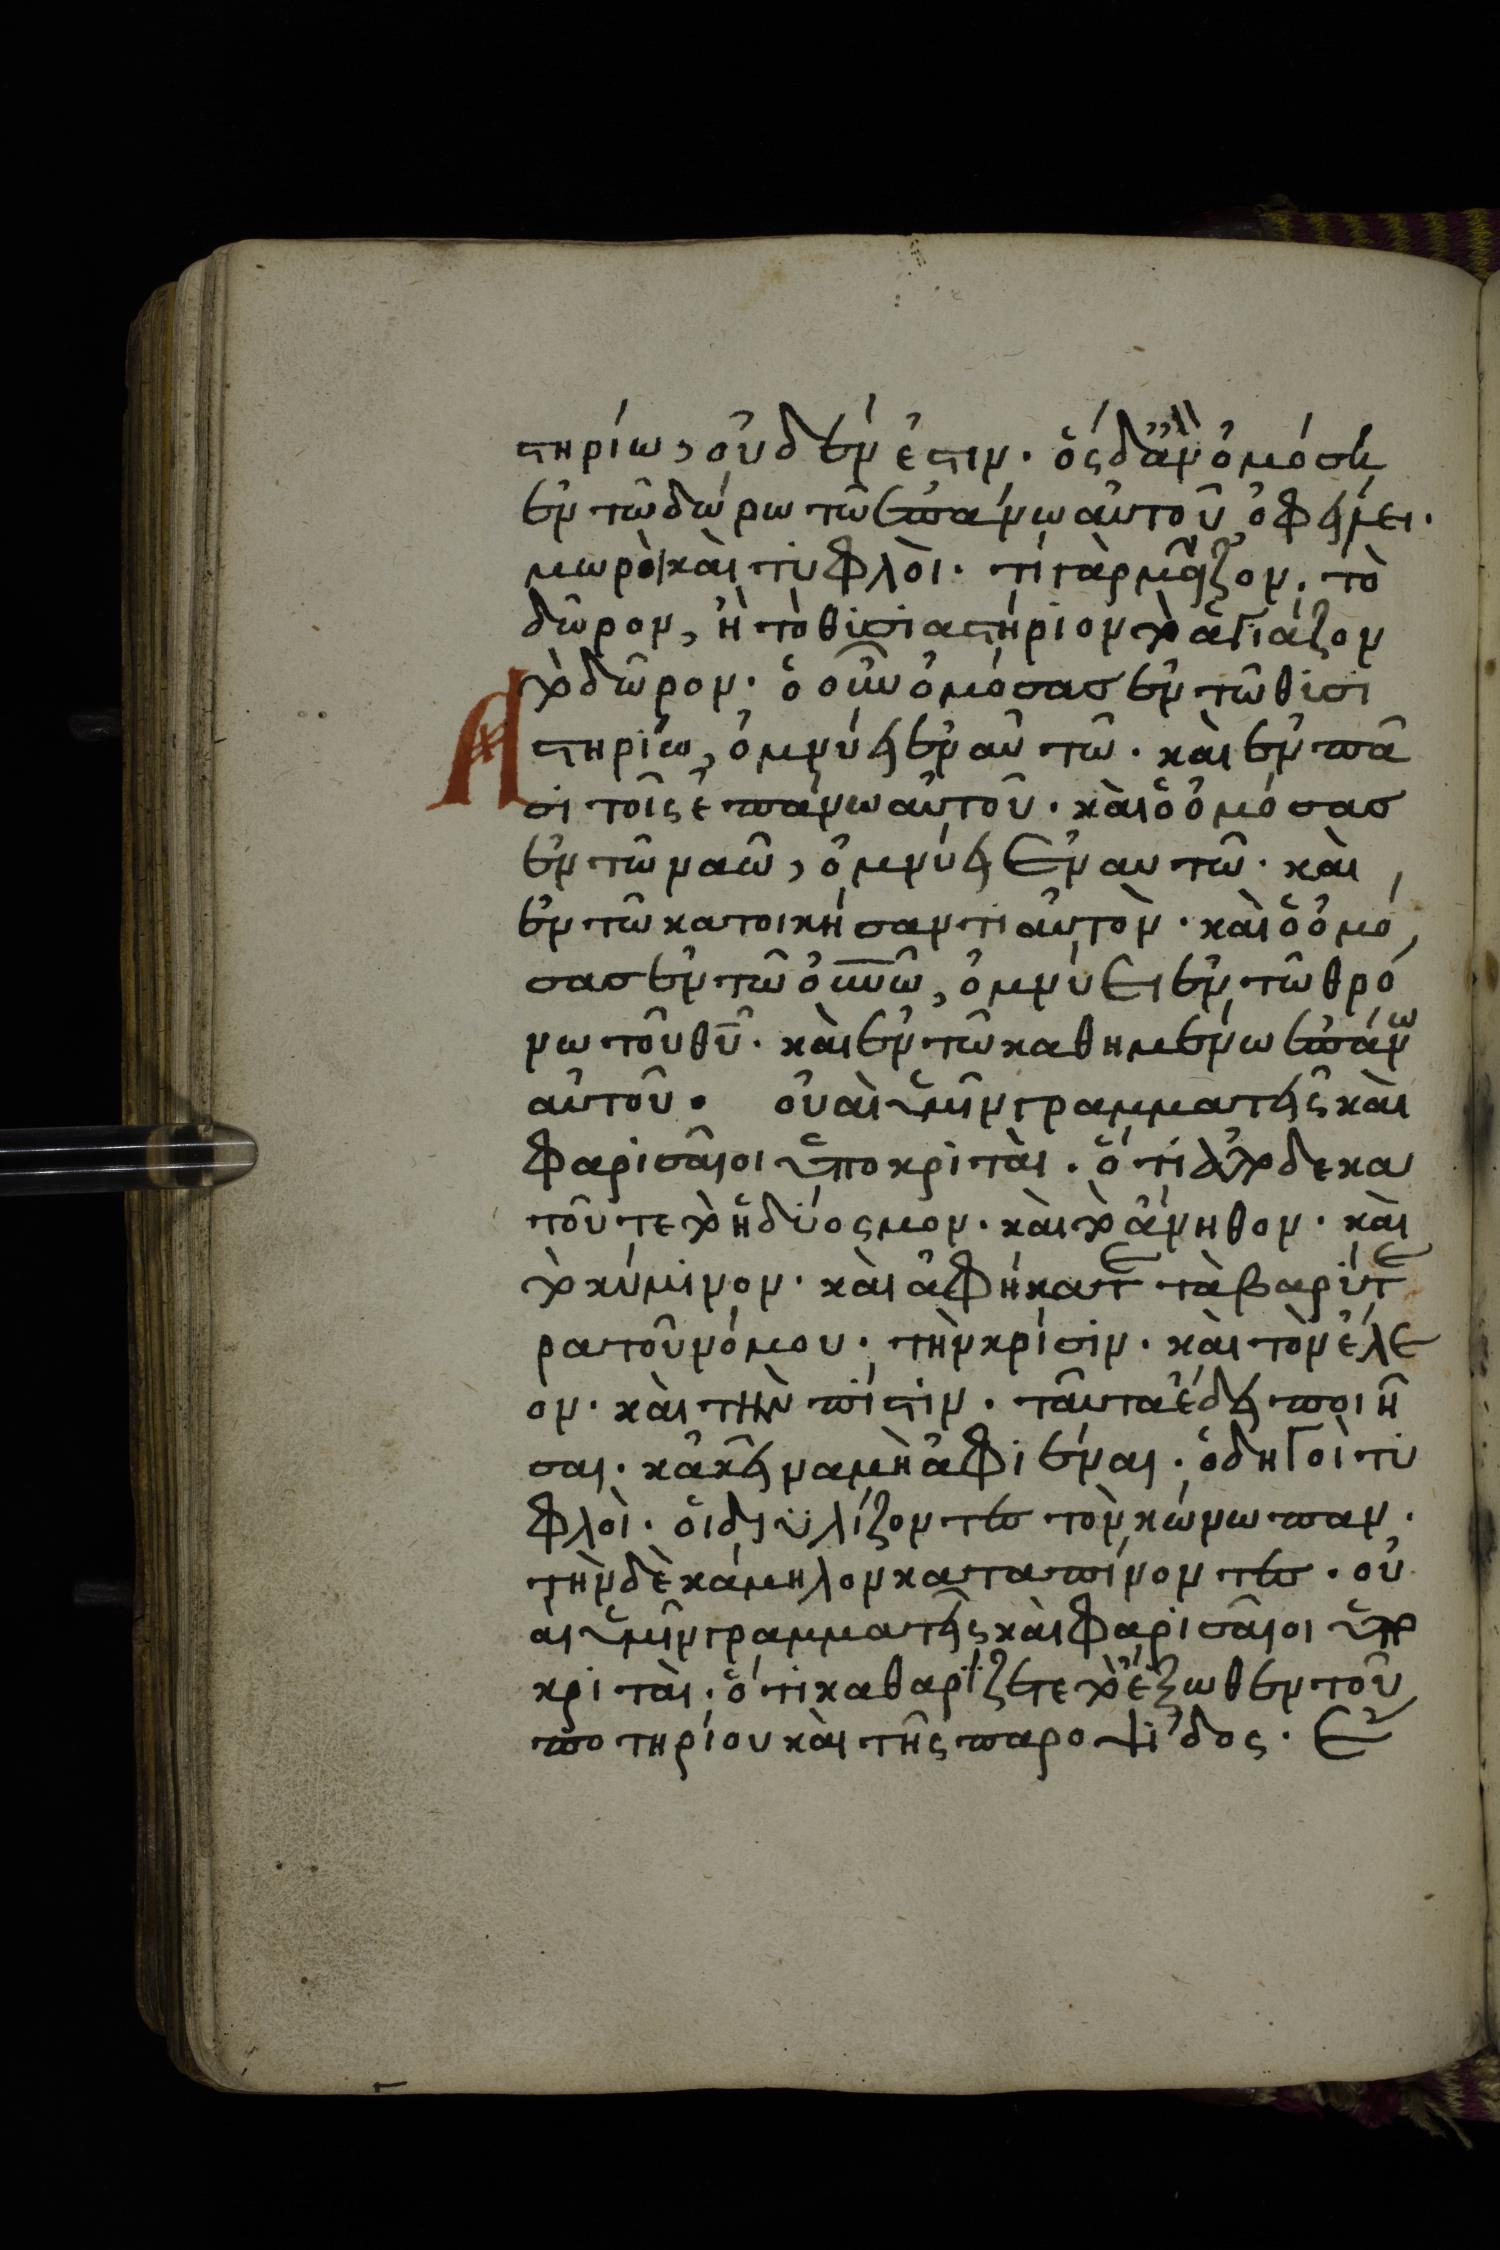 στηρίω, οὐδέν ἐστιν· ὃς δ' ἂν ὀμόσῃ
ἐν τῶ δώρω τῶ ἐπάνω αὐτοῦ ὀφείλει·
μωροὶ καὶ τυφλοὶ· τί γὰρ μεῖζον, τὸ
δῶρον, ἢ τὸ θυσιαστήριον τὸ ἁγιάζον
τὸ δῶρον· ὁ οὖν ὀμόσας ἐν τῶ θυσι
Α στηρίω, ὀμνύει ἐν αὐτῶ· καὶ ἐν πᾶ
σι τοῖς ἐπάνω αὐτοῦ· καὶ ὁ ὀμόσας
ἐν τῶ ναῶ, ὀμνύει ἐν αυτῶ· καὶ
ἐν τῶ κατοικήσαντι αὐτὸν· καὶ ὁ ὀμό
σας ἐν τῶ οὐνῶ, ὀμνύει ἐν τῶ θρό
νω τοῦ θυ· καὶ ἐν τῶ καθημένω ἐπάνω
αὐτοῦ· οὐαὶ ὑμῖν γραμματεῖς καὶ
φαρισαῖοι ὑποκριταὶ· ὅτι ἀποδεκα
τοῦτε τὸ ἡδύοσμον· καὶ τὸ ἄνηθον· καὶ
τὸ κύμινον· καὶ ἀφήκατε τὰ βαρύτε
ρα τοῦ νόμου· τὴν κρίσιν· καὶ τὸν ἔλε
ον· καὶ τὴν πίστιν· ταῦτα ἔδει ποιῆ
σαι· κἀκεῖνα μὴ ἀφιέναι· ὁδηγοὶ τυ
φλοὶ· οἱ διυλίζοντες τὸν κώνωπαν·
τὴν δὲ κάμηλον καταπίνοντες· οὐ
αι ὑμῖν γραμματεῖς καὶ φαρισαῖοι ὑπο
κριταὶ· ὅτι καθαρίζετε τὸ ἔξωθεν τοῦ
ποτηρίου καὶ τῆς παροψίδος· ἔ